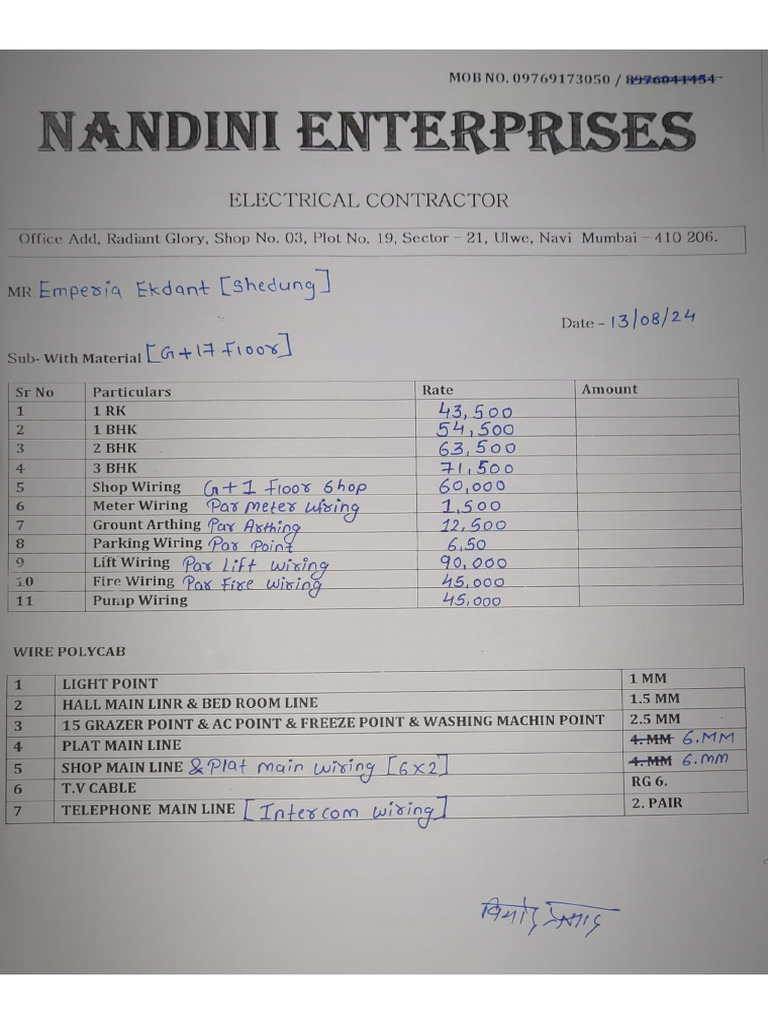 MOB NO. 09769173050 / 8976041454
NANDINI ENTERPRISES
ELECTRICAL CONTRACTOR
Office Add, Radiant Glory, Shop No. 03, Plot No. 19, Sector – 21, Ulwe, Navi Mumbai – 410 206.
MR Emperia Ekdant [Shedung]
Date - 13/08/24
Sub- With Material [G+17 Floor]
Sr No Particulars Rate Amount
1 1 RK 43,500
2 1 BHK 54,500
3 2 BHK 63,500
4 3 BHK 71,500
5 Shop Wiring G+1 Floor Shop 60,000
6 Meter Wiring Par meter wiring 1,500
7 Grount Arthing Par Arthing 12,500
8 Parking Wiring Par Point 6,50
9 Lift Wiring Par Lift wiring 90,000
10 Fire Wiring Par Fire wiring 45,000
11 Pump Wiring 45,000
WIRE POLYCAB
1 LIGHT POINT 1 MM
2 HALL MAIN LINR & BED ROOM LINE 1.5 MM
3 15 GRAZER POINT & AC POINT & FREEZE POINT & WASHING MACHIN POINT 2.5 MM
4 PLAT MAIN LINE 4. MM 6.MM
5 SHOP MAIN LINE & Plat main wiring [6x2] 4. MM 6.mm
6 T.V CABLE RG 6.
7 TELEPHONE MAIN LINE [Intercom wiring] 2. PAIR